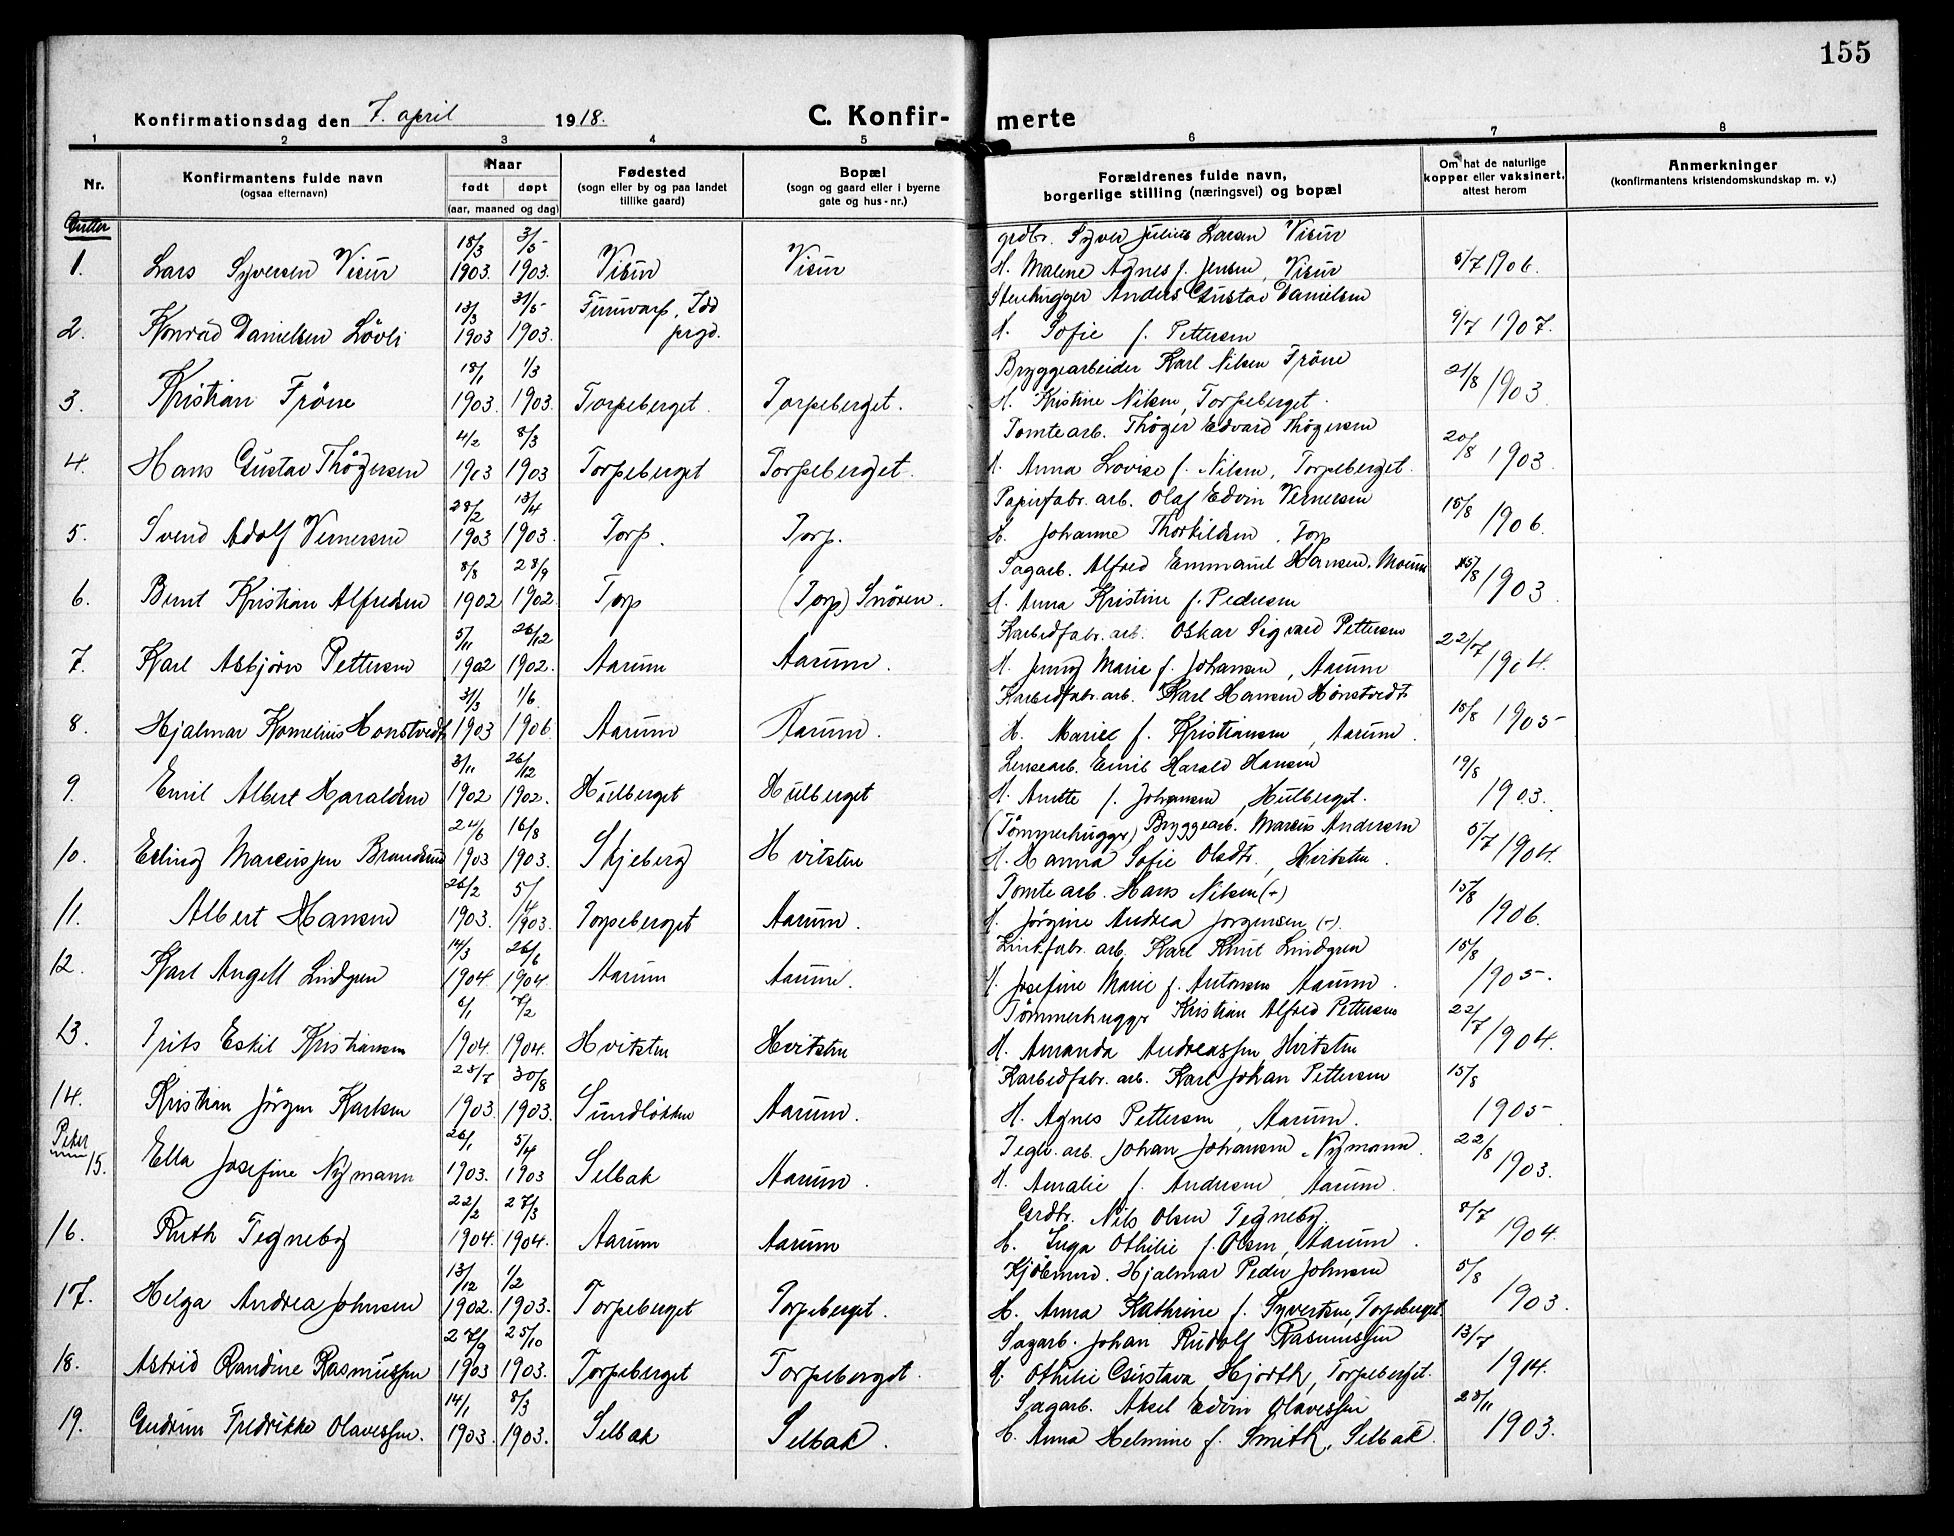 155
Konfirmationsdag den 7. april 1918.
C. Konfirmerte
1 2 3 4 5 6 7 8
Nr.
Konfirmantens fulde navn
(ogsaa efternavn)
Naar
født døpt
(aar, maaned og dag)
Fødested
(sogn eller by og paa landet
tillike gaard)
Bopæl
(sogn og gaard eller i byerne
gate og hus-nr.)
Forældrenes fulde navn,
borgerlige stilling (næringsvei) og bopæl
Om hat de naturlige
kopper eller vaksinert.
attest herom
Anmerkninger
(konfirmantens kristendomskundskap m. v.)
Gutter
18/3 3/5 grdbr. Syver Julius Larsen Visur
1. Lars Syversen Visur 1903. 1903. Visur Visur H. Malene Agnes f. Jensen, Visur 5/7 1906.
13/3 31/5 Furuvarp, Idd Stenhugger Anders Gustav Danielsen
2. Konrad Danielsen Lövli 1903 1903. prgd. H. Sofie f. Pettersen 9/7 1907.
18/1 1/3 Bryggearbeider Karl Nilsen Fröne
3. Kristian Fröne 1903. 1903. Torpeberget. Torpeberget. H. Kristine Nilsen, Torpeberget. 21/8 1903
4/2 8/3 Tomtearb. Thöger Edvard Thögersen
4. Hans Gustav Thögersen 1903 1903 Torpeberget Torpeberget. H. Anna Lovise f. Nilsen, Torpeberget. 20/8 1903.
28/2 13/4 Papirfabr. arb. Olaf Edvin Vernersen
5. Svend Adolf Vernersen 1903 1903. Torp. Torp. H. Johanne Thorkildsen, Torp 15/8 1906.
8/8 28/9 Sagarb. Alfred Emmanuel Hansen. Moum
6. Bernt Kristian Alfredsen 1902 1902. Torp (Torp) Snören. H. Anna Kristine f. Pedersen 15/8 1903
5/11 26/12 Karbidfabr. arb. Oskar Sigvard Pettersen
7. Karl Asbjörn Pettersen 1902 1902. Aarum Aarum. H. Jenny Marie f. Johansen, Aarum 22/7 1904.
31/3 1/6 Karbidfabr. arb. Karl Hansen Hönstvedt
8. Hjalmar Kornelius Honstvedt 1903 1906. Aarum Aarum. H. Marie f. Kristiansen, Aarum. 15/8 1905
3/11 26/12 Lensearb. Emil Harald Hansen
9. Emil Albert Haraldsen 1902 1902. Hulberget Hulberget H. Anette f. Johansen, Hulberget. 19/8 1903.
24/6 16/8 (Tömmerhugger) Bryggearb. Marius Andersen
10. Erling Marcussen Brandsrud 1903 1903. Skjeberg Hvitsten H. Hanna Sofie Olsdtr., Hvitsten. 5/7 1904.
26/2 5/4 Tomtearb. Hans Nilsen (+)
11. Albert Hansen 1903. 1903. Torpeberget Aarum. H. Jörgine Andrea Jorgensen (+). 15/8 1906.
14/3 26/6 Zinkfabr. arb. Karl Knut Lindgren
12. Karl Angell Lindgren 1904 1904. Aarum Aarum. H. Josefine Marie f. Antonsen Aarum. 15/8 1905.
6/1 7/2 Tömmerhugger Kristian Alfred Pettersen
13. Frits Eskil Kristiansen 1904. 1904. Hvitsten Hvitsten H. Amanda Andreassen, Hvitsten 22/7 1904.
23/7 30/8 Karbidfabr. arb. Karl Johan Pettersen
14. Kristian Jörgen Karlsen 1903. 1903. Sundlökken Aarum. H. Agnes Pettersen, Aarum. 15/8 1905
Piker
26/1 5/4 Tegl. arb. Johan Johansen Nymann.
15. Ella Josefine Nymann 1903. 1903 Selbak Aarum. H. Amalie f. Andersen, Aarum. 22/8 1903.
22/2 27/3 Grdbr. Nils Olsen Tegneby.
16. Ruth Tegneby 1904. 1904. Aarum Aarum H. Inga Othilie f. Olsen, Aarum. 8/7 1904.
13/12 1/2 Kjöbmnd. Hjalmar Peder Johnsen
17. Helga Andrea Johnsen 1902. 1903. Torpeberget Torpeberget. H. Anna Kathrine f. Syvertsen, Torpeberget 5/8 1903.
27/9 25/10 Sagarb. Johan Rudolf Rasmussen
18. Astrid Randine Rasmussen 1903 1903. Torpeberget Torpeberget. H. Othilie Gustava Hjorth, Torpeberget. 13/7 1914.
14/1 8/3 Sagarb. Aksel Edvin Olavessen
19. Gudrun Fredrikke Olavessen. 1903. 1903. Selbak Selbak. H. Anna Helmine f. Smith, Selbak. 28/11 1903.